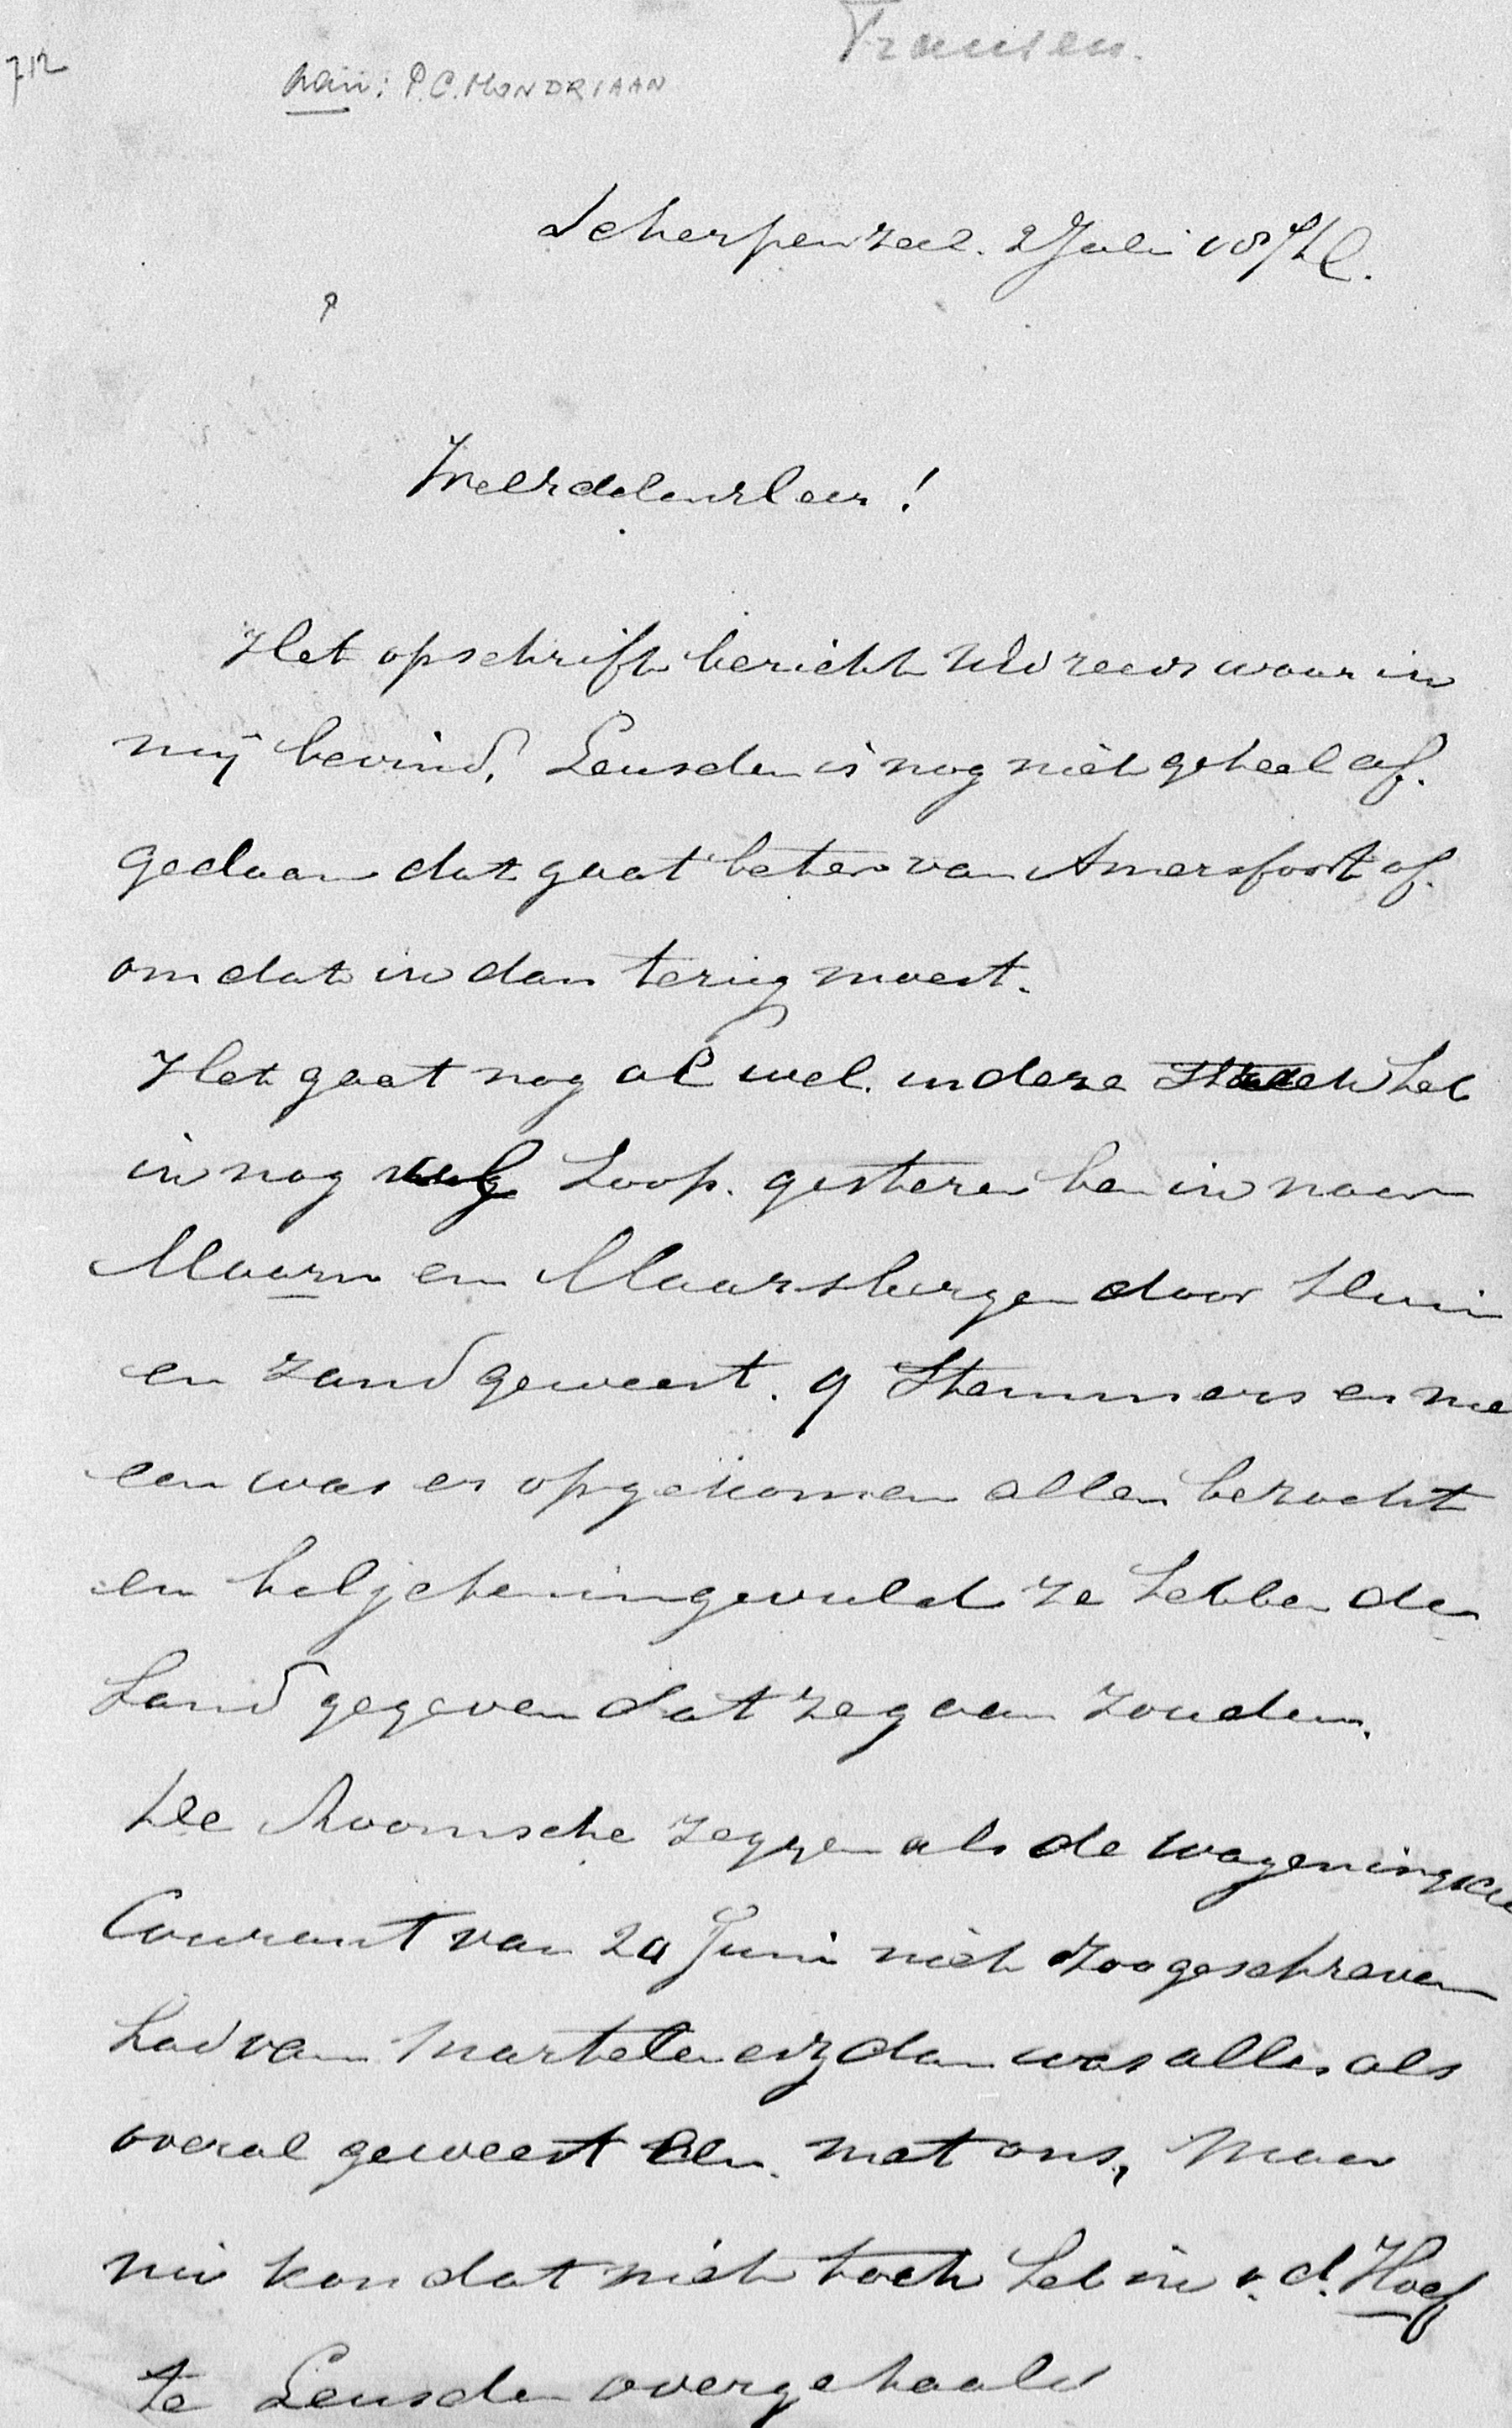 Fransen.
712
Aan: P.C. MONDRIAAN
Scherpenzeel. 2 Juli
WelEdelenHeer!
Het opschrift bericht UW reeds waar ik
mij bevind. Leusden is nog niet geheel af-
gedaan dat gaat beter van Amersfoort af.
omdat ik dan terug moest.
Het gaat nog al wel. in deze heb
ik nog hoop. gisteren ben ik naar
Maarn en Maarsbergen door
en zand geweest. 9 Stemmers en
een was er opgekomen allen bezocht
en biljetten ingevuld ze hebben de
hand gegeven dat ze gaan zouden.
De Roomsche zeggen als de Wageningsche
Courant van 20 Juni niet zoo geschreven
had van Martelen enz dan was alles als
overal geweest met ons, maar
nu kon dat niet toch heb ik v. d. Hoef
te Leusden overgehaald